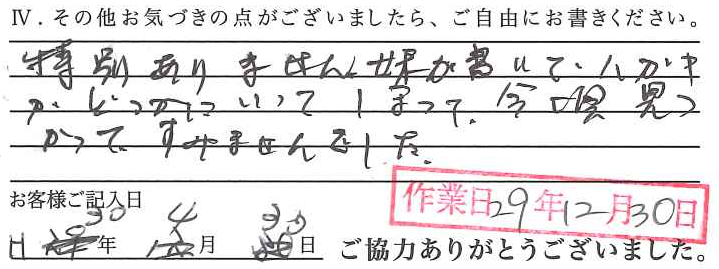 Ⅳ．その他お気づきの点がございましたら、ご自由にお書きください。
特別ありません 妹が書いて、ハガキ
がどっかにいってしまって、今頃見つ
かって すみませんでした。
お客様ご記入日
作業日29年12月30日
H 30年 4月 30日 ご協力ありがとうございました。